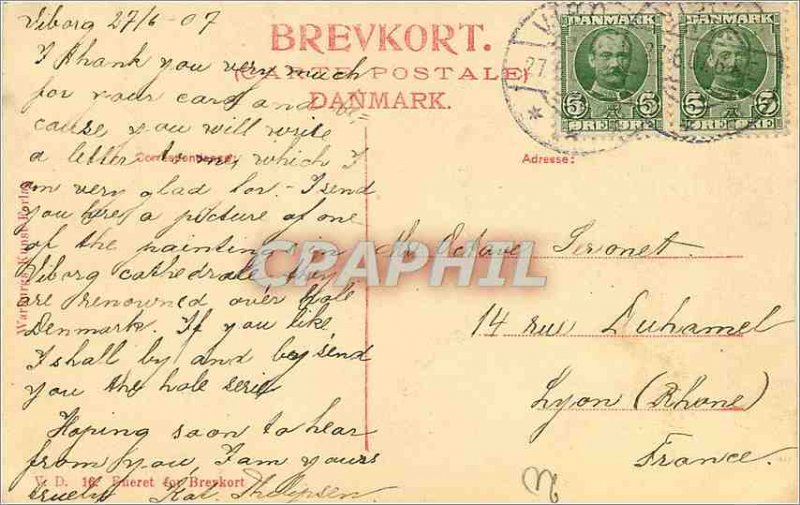 Viborg 27/6 07
I thank you very much
for your card and be=
cause, you will write
a letter to me, which I
am very glad for. - I send
you here a picture of one
of the painting in
Viborg cathedrale they
are renowned over hole
Denmark. If you like
I shall by and by send
you the hole serie
Hoping soon to hear
from you, I am yours
truely Kat.
BREVKORT.
(CARTE POSTALE)
DANMARK.
Correspondance:
Adresse:
DANMARK
5 5
ØRE ØRE
DANMARK
5 5
ØRE ØRE
Octave Seronet.
14 rue Duhamel
Lyon (Rhone)
France.
Warburgs Kunst Forlag
V. D. 16. Eneret for Brevkort
CPAPHIL